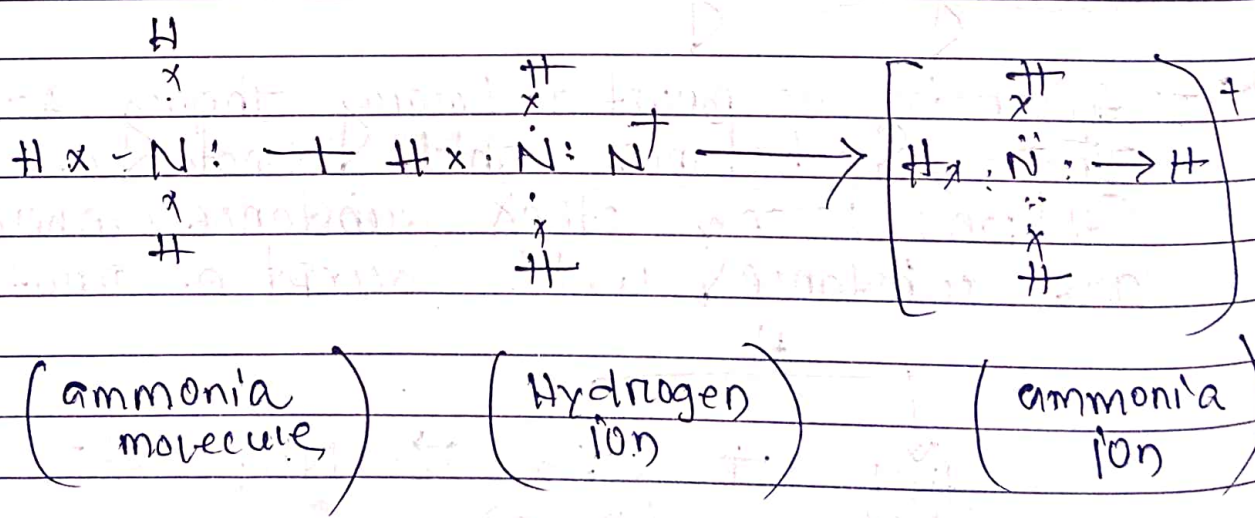 H
x
.
H x - N : + H x . N : N⁺ ⟶ [ H x : N : → H ]⁺
H
x
.
H
x
..
x
H
.
x
H
..
x
H
(ammonia molecule) (Hydrogen ion) (ammonia ion)